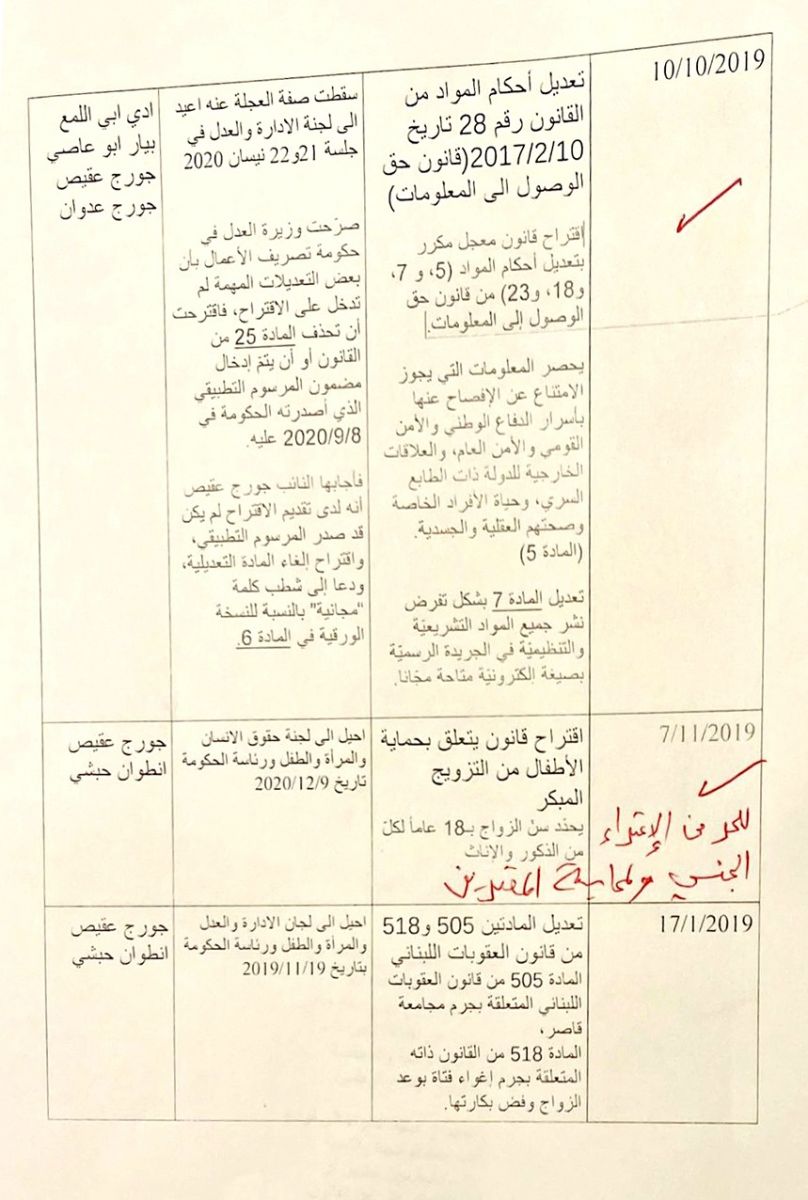 10/10/2019
تعديل أحكام المواد من
القانون رقم 28 تاريخ
2017/2/10(قانون حق
الوصول الى المعلومات)
إقتراح قانون معجل مكرر
بتعديل أحكام المواد (5، و 7،
و18، و23) من قانون حق
الوصول إلى المعلومات.
يحصر المعلومات التي يجوز
الامتناع عن الإفصاح عنها
بأسرار الدفاع الوطني والأمن
القومي والأمن العام، والعلاقات
الخارجية للدولة ذات الطابع
السري، وحياة الأفراد الخاصة
وصحتهم العقلية والجسدية.
(المادة 5)
تعديل المادة 7 بشكل تفرض
نشر جميع المواد التشريعيّة
والتنظيميّة في الجريدة الرسميّة
بصيغة إلكترونيّة متاحة مجّانا.
سقطت صفة العجلة عنه اعيد
الى لجنة الادارة والعدل في
جلسة 21و22 نيسان 2020
صرّحت وزيرة العدل في
حكومة تصريف الأعمال بأن
بعض التعديلات المهمة لم
تدخل على الاقتراح، فاقترحت
أن تحذف المادة 25 من
القانون أو أن يتمّ إدخال
مضمون المرسوم التطبيقي
الذي أصدرته الحكومة في
2020/9/8 عليه.
فأجابها النائب جورج عقيص
أنه لدى تقديم الاقتراح لم يكن
قد صدر المرسوم التطبيقي،
واقتراح إلغاء المادة التعديلية،
ودعا إلى شطب كلمة
“مجانية" بالنسبة للنسخة
الورقية في المادة 6.
ادي ابي اللمع
بيار ابو عاصي
جورج عقيص
جورج عدوان
7/11/2019
اقتراح قانون يتعلق بحماية
الأطفال من التزويج
المبكر
يحدّد سنّ الزواج بـ18 عاماً لكلّ
من الذكور والإناث
احيل الى لجنة حقوق الانسان
والمرأة والطفل ورئاسة الحكومة
تاريخ 2020/12/9
جورج عقيص
انطوان حبشي
للحد من الإعتداء
الجنسي ولمحاسبة المعتدين
17/1/2019
تعديل المادتين 505 و518
من قانون العقوبات اللبناني
المادة 505 من قانون العقوبات
اللبناني المتعلقة بجرم مجامعة
قاصر،
المادة 518 من القانون ذاته
المتعلقة بجرم إغواء فتاة بوعد
الزواج وفض بكارتها.
احيل الى لجان الادارة والعدل
والمرأة والطفل ورئاسة الحكومة
بتاريخ 2019/11/19
جورج عقيص
انطوان حبشي